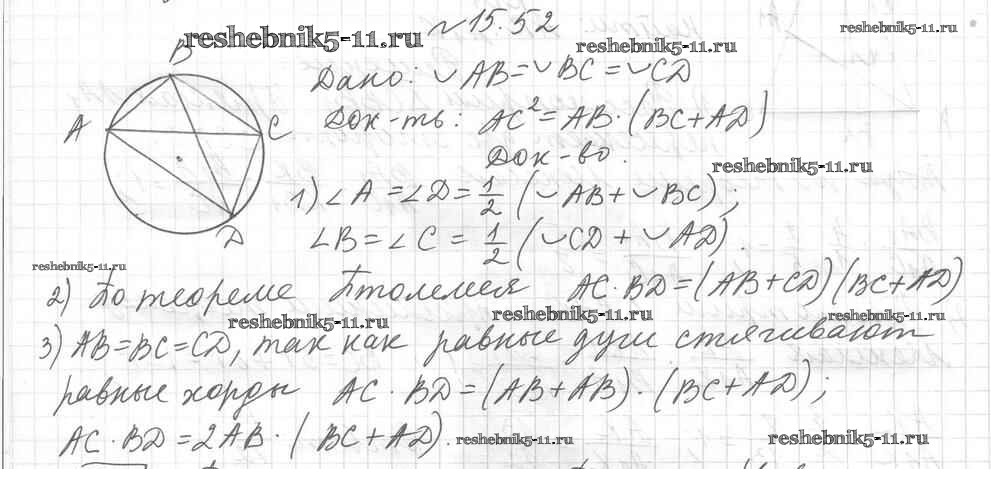 №15.52
reshebnik5-11.ru
reshebnik5-11.ru
reshebnik5-11.ru
B
Дано: ◡AB=◡BC=◡CD
A
C
Док-ть: AC²=AB·(BC+AD)
Док-во.
reshebnik5-11.ru
1) ∠A=∠D=1/2(◡AB+◡BC);
D
∠B=∠C=1/2(◡CD+◡AD).
reshebnik5-11.ru
2) По теореме Птолемея AC·BD=(AB+CD)(BC+AD)
reshebnik5-11.ru
reshebnik5-11.ru
reshebnik5-11.ru
3) AB=BC=CD, так как равные дуги стягивают
равные хорды AC·BD=(AB+AB)·(BC+AD);
AC·BD=2AB·(BC+AD).
reshebnik5-11.ru
reshebnik5-11.ru